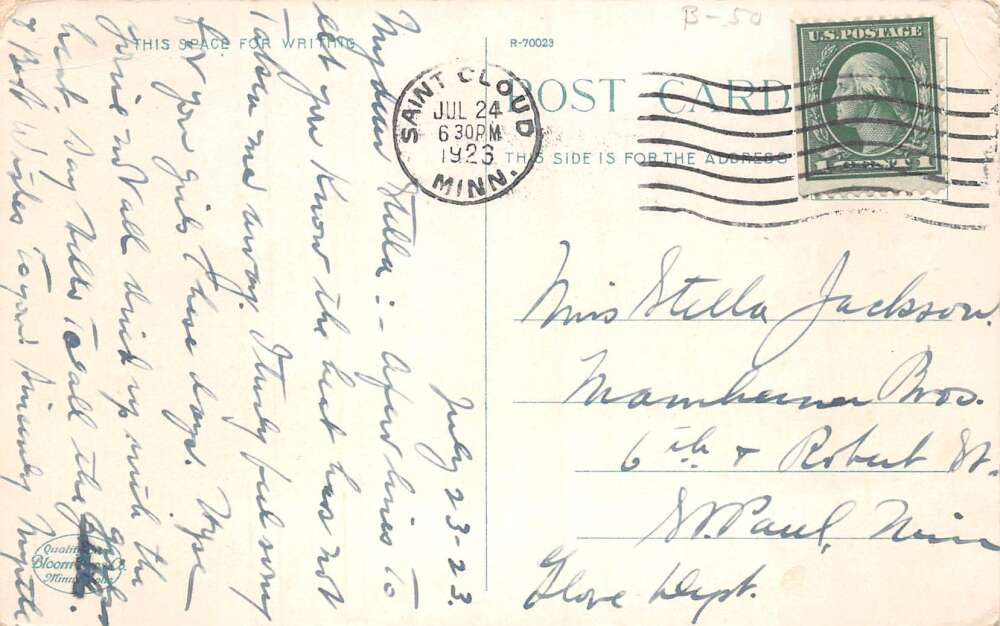 B-50
THIS SPACE FOR WRITING
R-70023
POST CARD
THIS SIDE IS FOR THE ADDRESS
SAINT CLOUD
JUL 24
6 30 PM
1923
MINN.
U.S. POSTAGE
1 CENT 1
July 23-23.
My dear Stella:- A few lines to
let you know the heat has not
taken me away. I truly feel sorry
for you girls these days. Hope
you're not all dried up with the
heat. Say hello to all the girls
& Best Wishes to you Sincerely Myrtle
Miss Stella Jackson.
Mannheimer Bros.
6th & Robert St.
St. Paul, Minn
Glove Dept.
Quality
Bloom Bros. Co.
Minneapolis